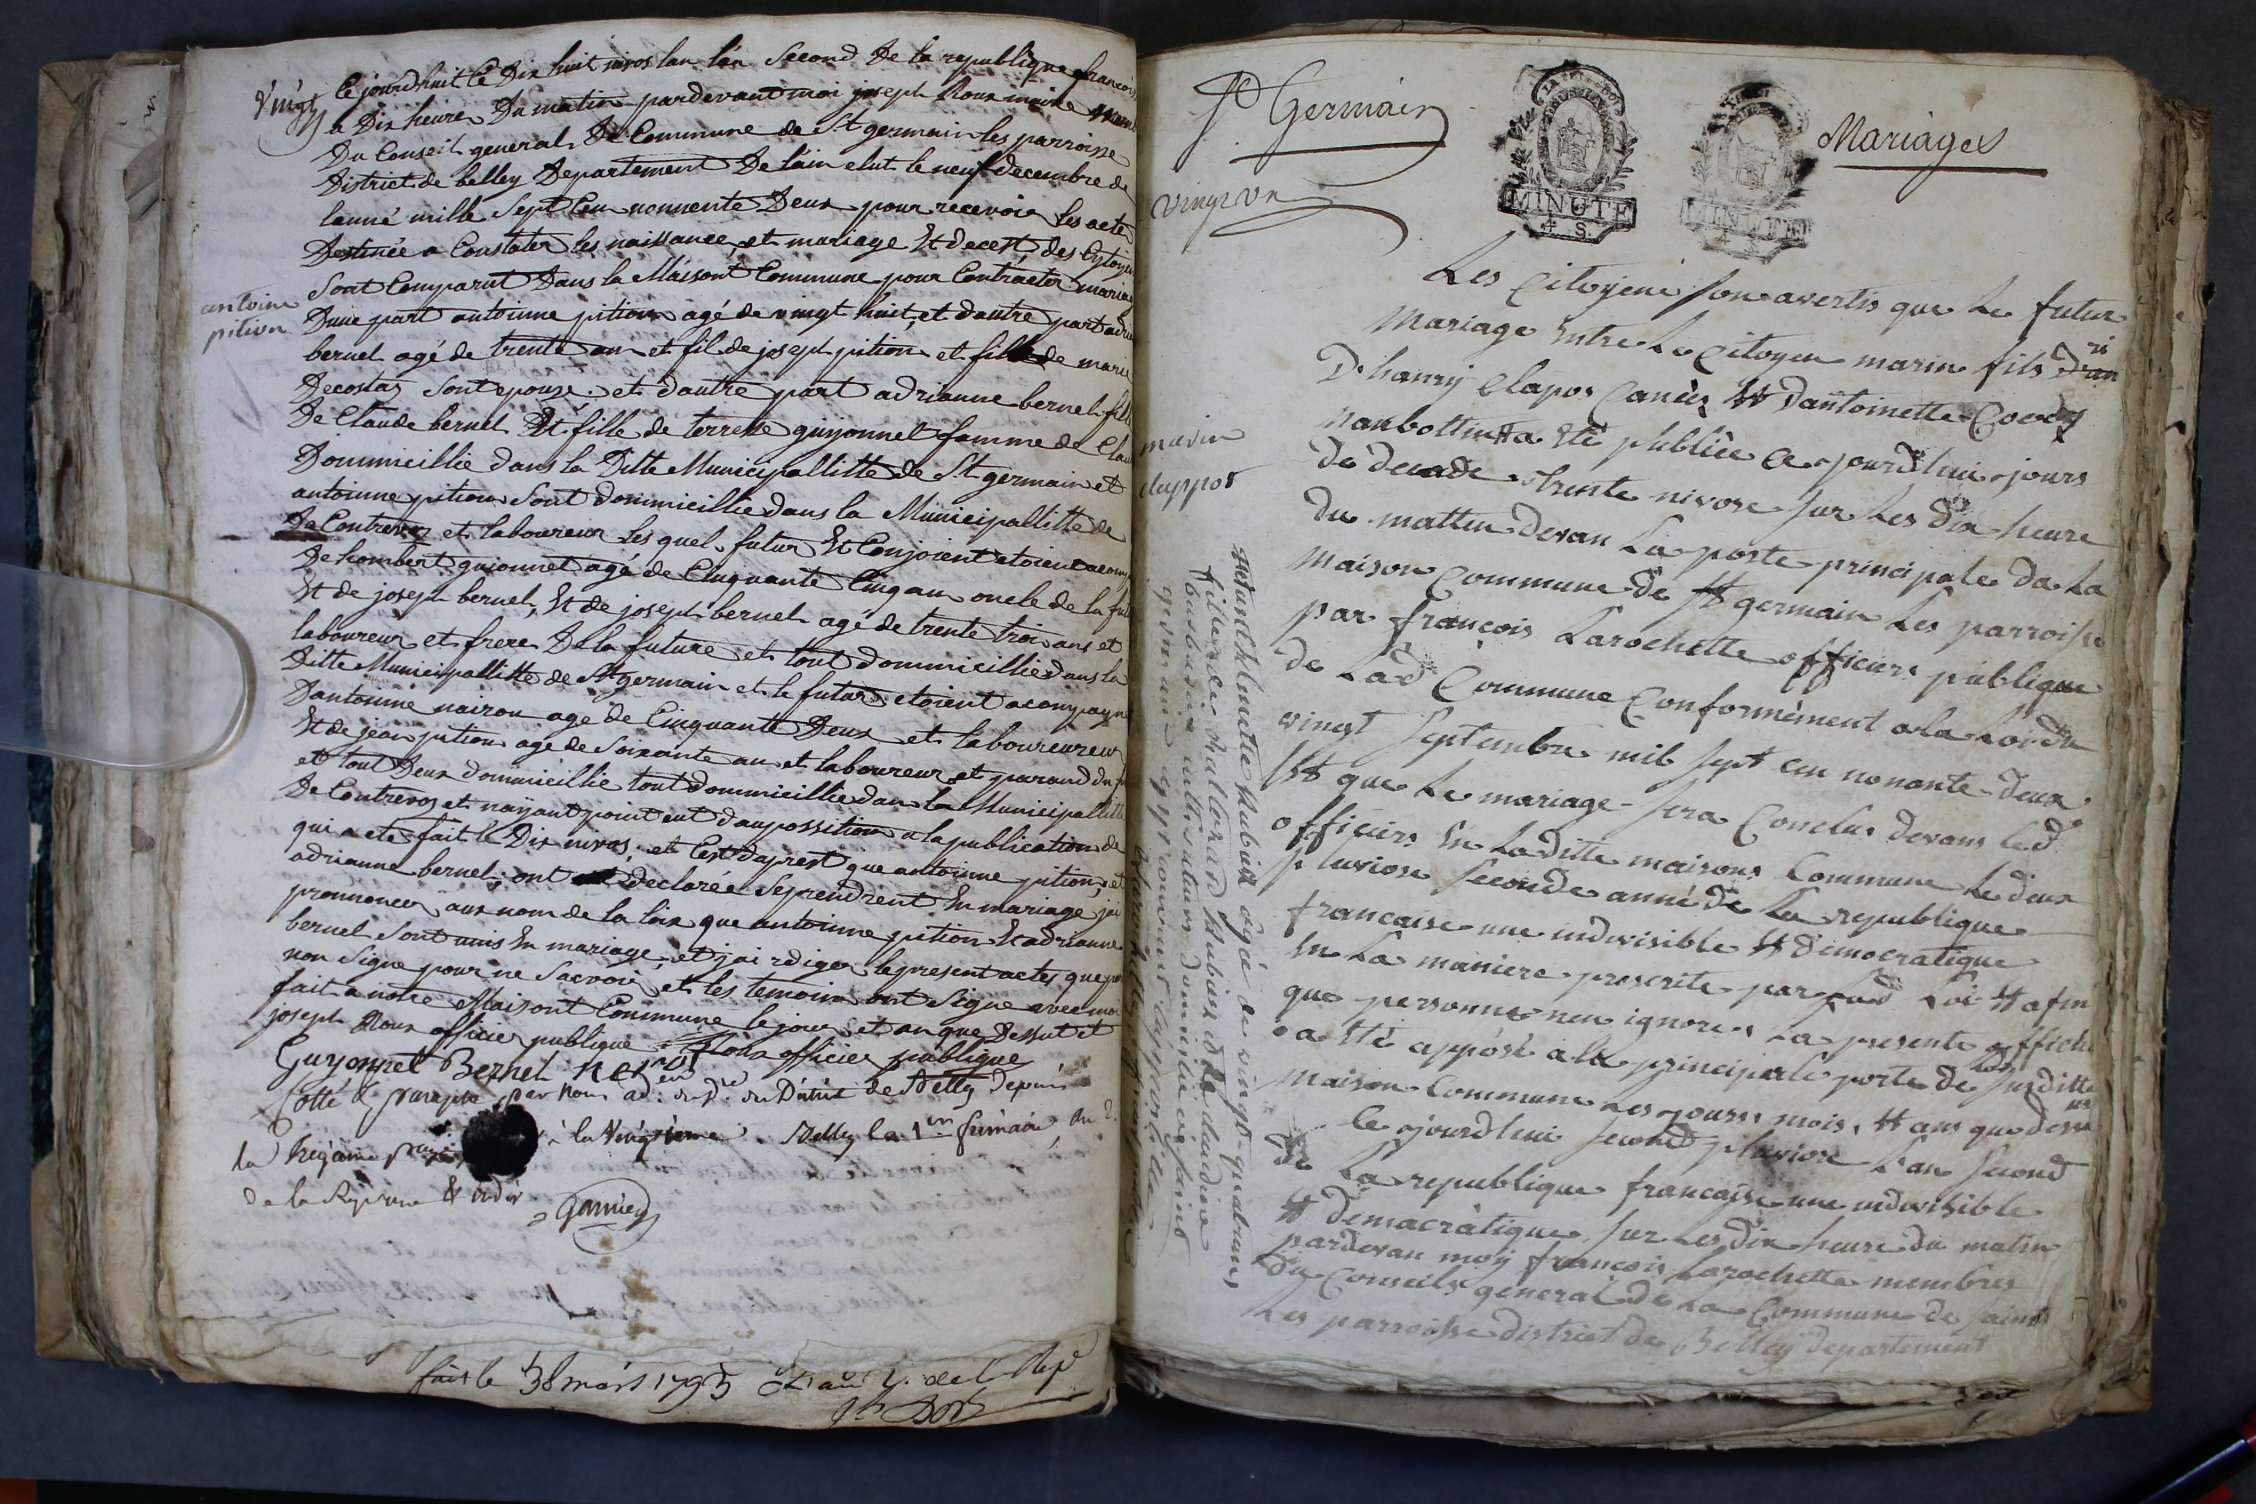 Vingt
Ce jourdhuit Ce Dix huit nivos lan lan Second De la republique francois
a Dix heures Du matin pardevant moi joseph Roux maire
Du Conseil general De Commune de St germain les parroisse
District de belley Departement De lain elut le neuf decembre de
lanné mille Sept Cen nonnente Deux pour recevoir les acte
Destinée a Constater les naissance et mariage Et decest des Cytoyen
Sont Comparut Dans la Maisont Commune pour Contracter maria
antoine
pition
Dune part antoinne pition agé de vingt huit et dautre part adri
bernel agé de trente an et fil de joseph pition et fille de marie
Decostaz Sont epouse et dautre part adrianne bernel fille
De Claude bernel Et fille de terresse guyonnet famme de Clau
Dommicillie dans la Ditte Municipallitte de St germain et
antoinne pition Sont dommicillie dans la Municipallitte de
De Contrevoz et laboureur lesquel futur Et Conjoient etoient acomp
De hombert guionnet agé de Cinquante Cinq an oncle de la fut
Et de joseph bernel, Et de joseph bernel agé de trente troi ans et
laboureur et frere De la future et tout dommicillie dans la
Ditte Municipallitte de St germain et le futur etoient acompagn
Dantoinne nairou agé de Cinquante Deux et laboureureur
Et de jean pition agé de Soixante an et laboureur et parand du fu
et tout Deux dommicillie tout dommicillie dans la Municipallitt
De Contrevoz et nayant point eut daupossition a la publication de
qui a ete fait le Dix nivos et Cest daprest que antoinne pition et
adrianne bernel ont declarée Seprendrent En mariage jai
pronnoncer aux nom de la loix que antoinne pition Et adrianne
bernel Sont unis En mariage et jai rediger le present actes que
non Signe pour ne Savoir et les temoin ont Signe avec moi
fait a notre Maisont Commune le jour et an que Dessut et
joseph Roux officier publique Roux officier publique
Guyonnet Bernel
Cotté & paraphé par nous ad. du D.re du District de Belley depuis
la première page à la vingtième. Belley le 1er frimaire an 2.
de la Répu une & indiv
Garnier
fait le 38 mars 1793 L'an 2. de la Rep
St Germain
MINUTE
4 S.
MINUTE
4 S.
Mariages
vingt un
Les Citoyens Son avertis que Le futur
Mariage Entre Le Citoyen marin fils
D'hanrij Clapos Canier Et Dantoinette
a Eté publiée Ce jourdhui jours
marin
clappos
de decade trente nivose Sur Les dix heure
du mattin devan La porte principale de La
Maison Commune de St germain Les parroisse
par françois Larochette officiers publique
de Lad Commune Conformément ala Loi du
vingt Septembre mil Sept cen nonante deux
Et que Le mariage Sera Conclus devans led
officiers En Laditte maisons Commune Le deux
pluviose Seconde anné de La republique
francaise une indivisible Et démocratique
En La maniere prescrite par Lad Loi Et afin
que personne nen ignore La presente affiche
a Eté apposé a la principale porte de Lasusditte
Maison Commune Les jours, mois, Et ans que dessu
Ce jourdhui Second pluviose L'an Second
de La republique francaise une indivisible
Et démocratique Sur Les dix heure du matin
pardevan moy françois Larochette membres
du Conseils général de La Commune de Saint
Les parroisse district de Belley departement
agée de vingt quatre ans